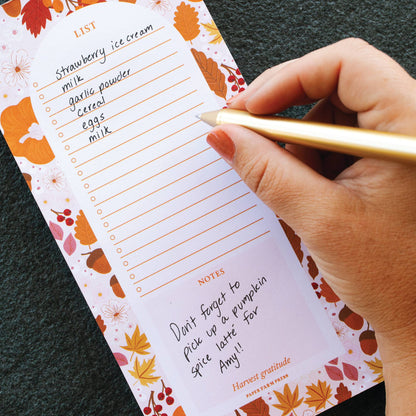 LIST
strawberry ice cream
milk
garlic powder
cereal
eggs
milk
NOTES
Don't forget to
pick up a pumpkin
spice latté for
Amy!!
Harvest gratitude
PAPER FARM PRESS